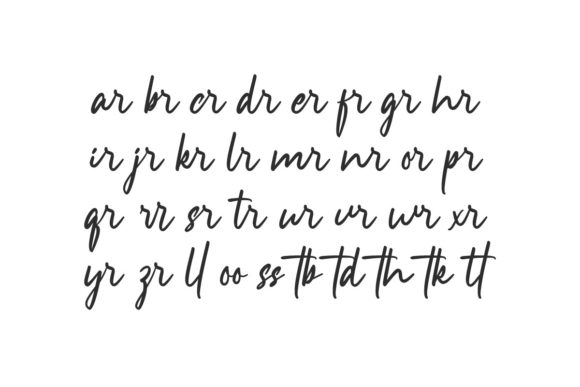 ar br cr dr er fr gr hr
ir jr kr lr mr nr or pr
qr rr sr tr ur vr wr xr
yr zr ll oo ss tb td th tk tt